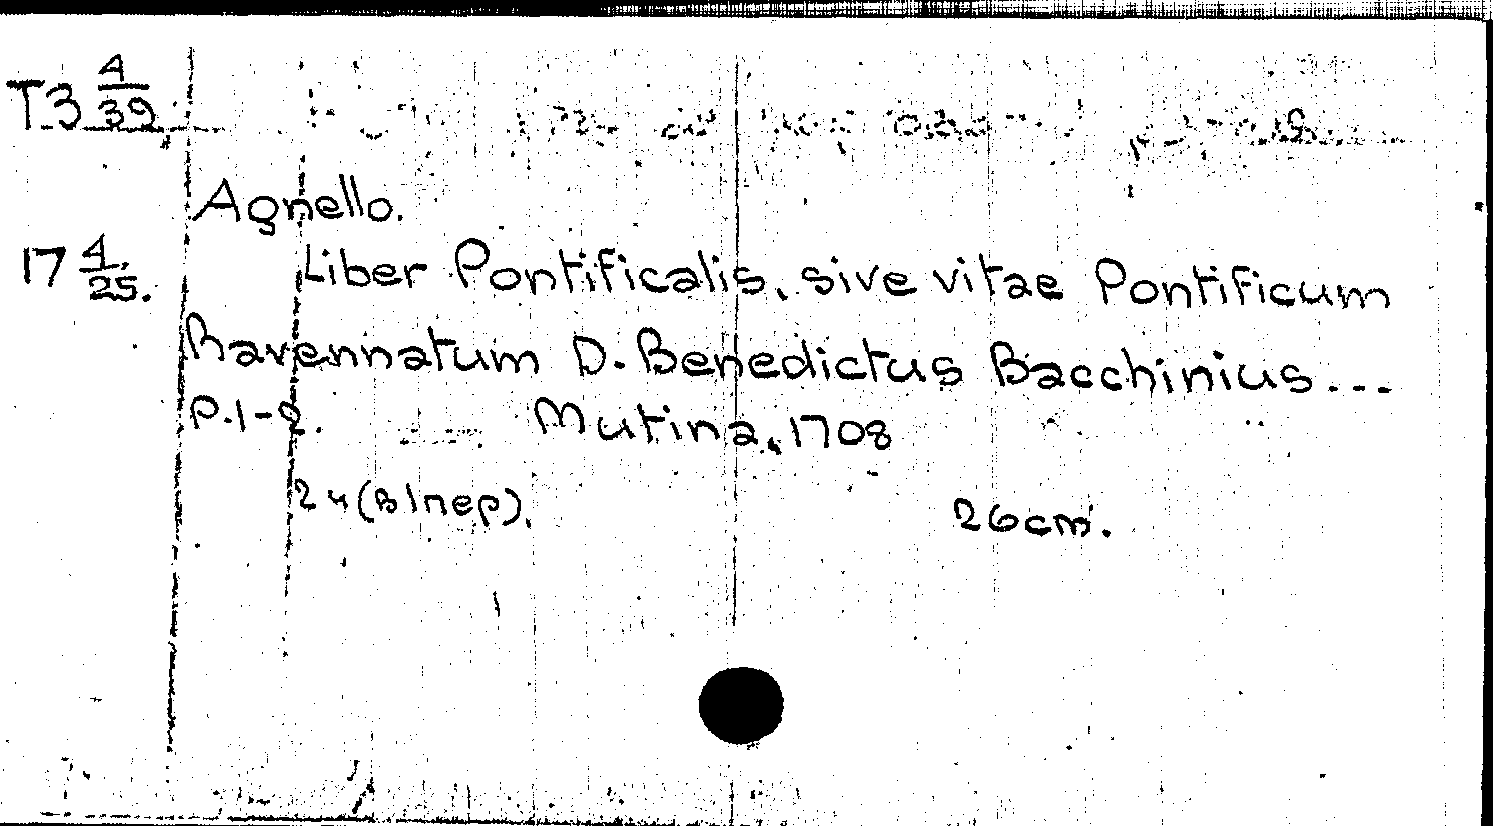 T3 4/39
Agnello.
17 4/25.
Liber Pontificalis, sive vitae Pontificum
Ravennatum D. Benedictus Bacchinius...
P.1-2. Mutina, 1708
2 ч (в 1 пер). 26cm.